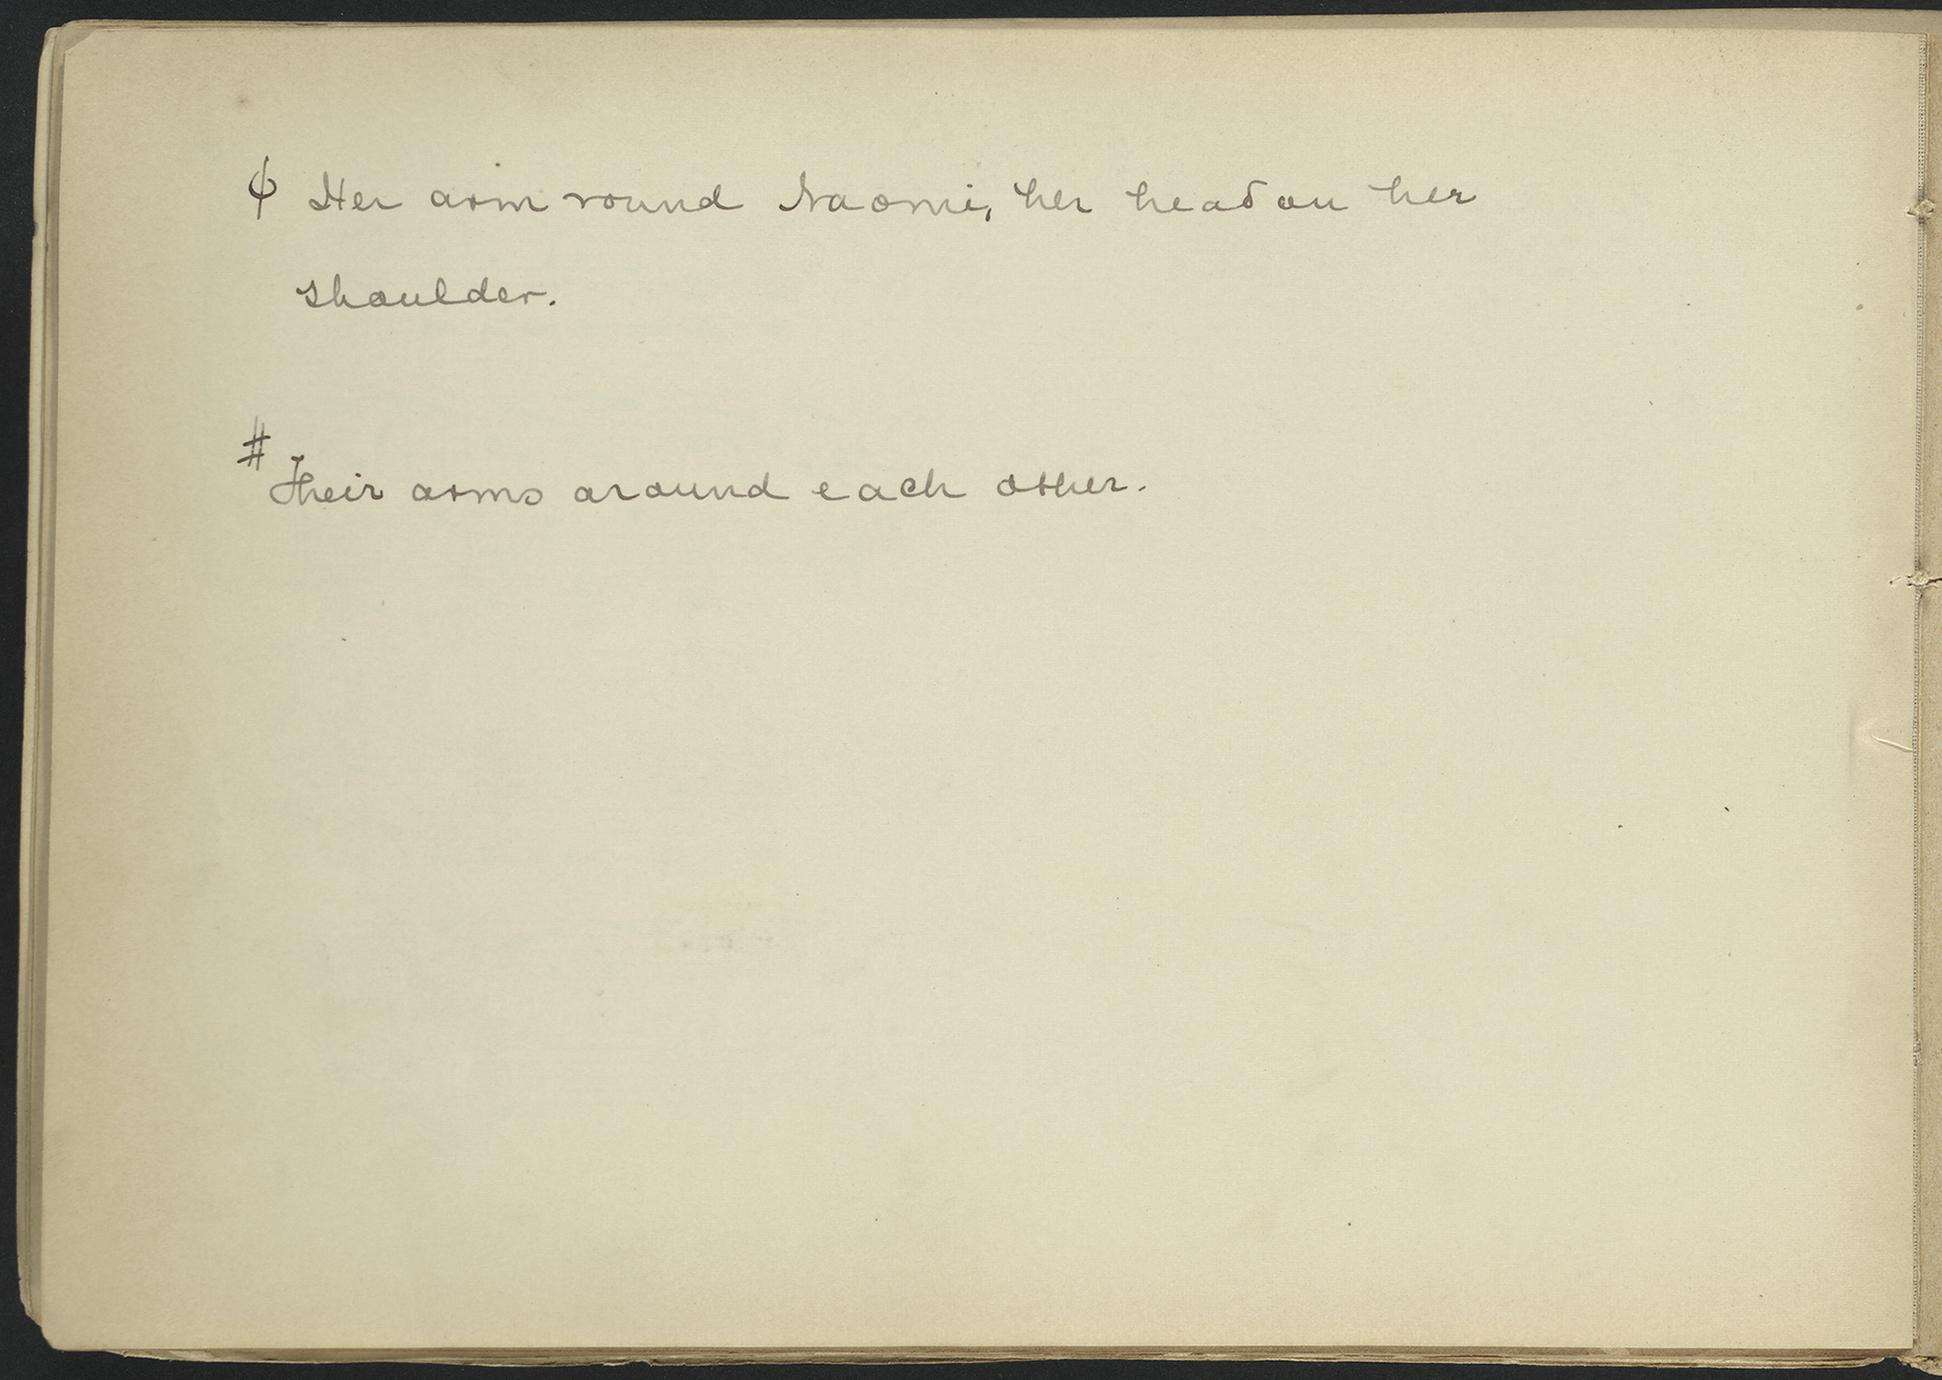 ϕ Her arm round Naomi, her head on her
shoulder.
#
Their arms around each other.